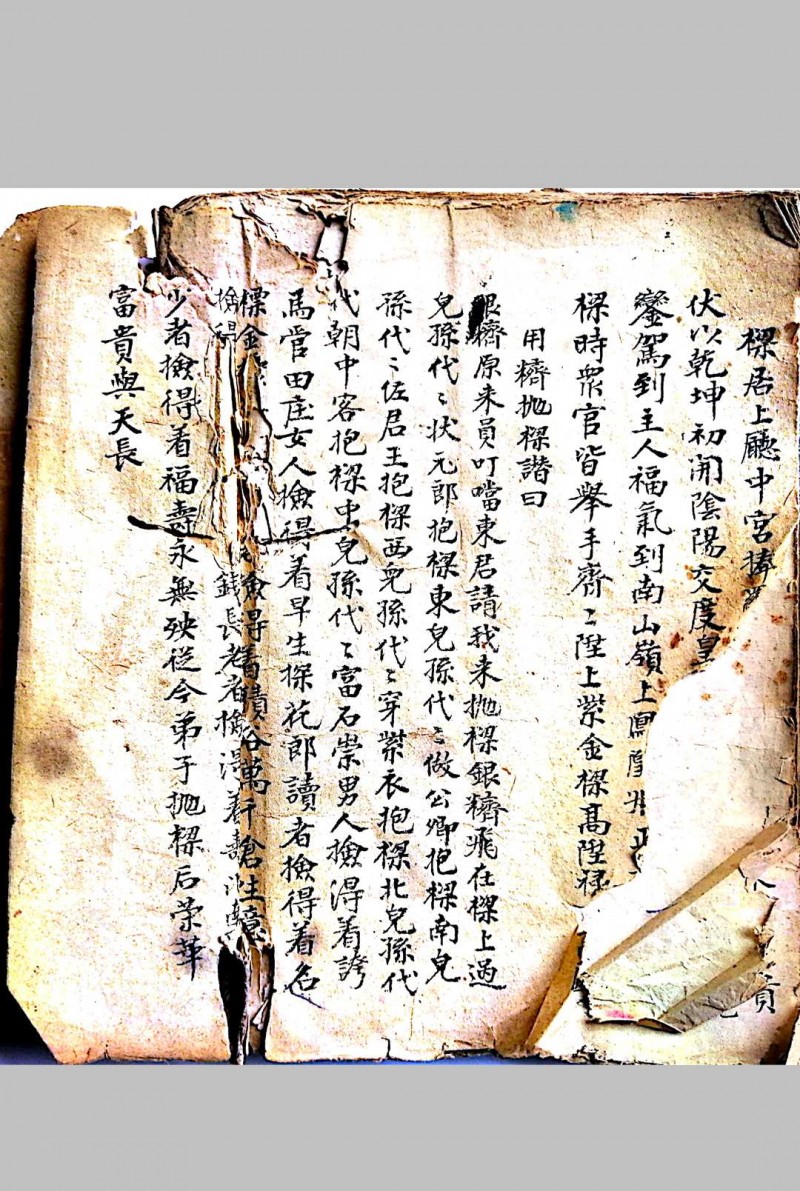 樑居上廳中宮捧
伏以乾坤初開陰陽交度皇
鑾駕到主人福氣到南山嶺上鳳凰
樑時衆官皆舉手齊〻陞上紫金樑高陞祿
用糈抛樑諧曰
銀糈原来員叮噹東君請我来抛樑銀糈飛在樑上過
兒孫代〻状元郎抱樑東兒孫代〻做公卿抱樑南兒
孫代〻佐君王抱樑西兒孫代〻穿紫衣抱樑北兒孫代
代朝中客抱樑中兒孫代〻富石崇男人撿得着誇
馬管田庄女人撿得着早生探花郎讀者撿得着名
標金 撿得着積谷萬千艙生
撿得 錢長老者撿得着壽
少者撿得着福壽永無殃從今弟子抛樑后荣華
富貴與天長
貴